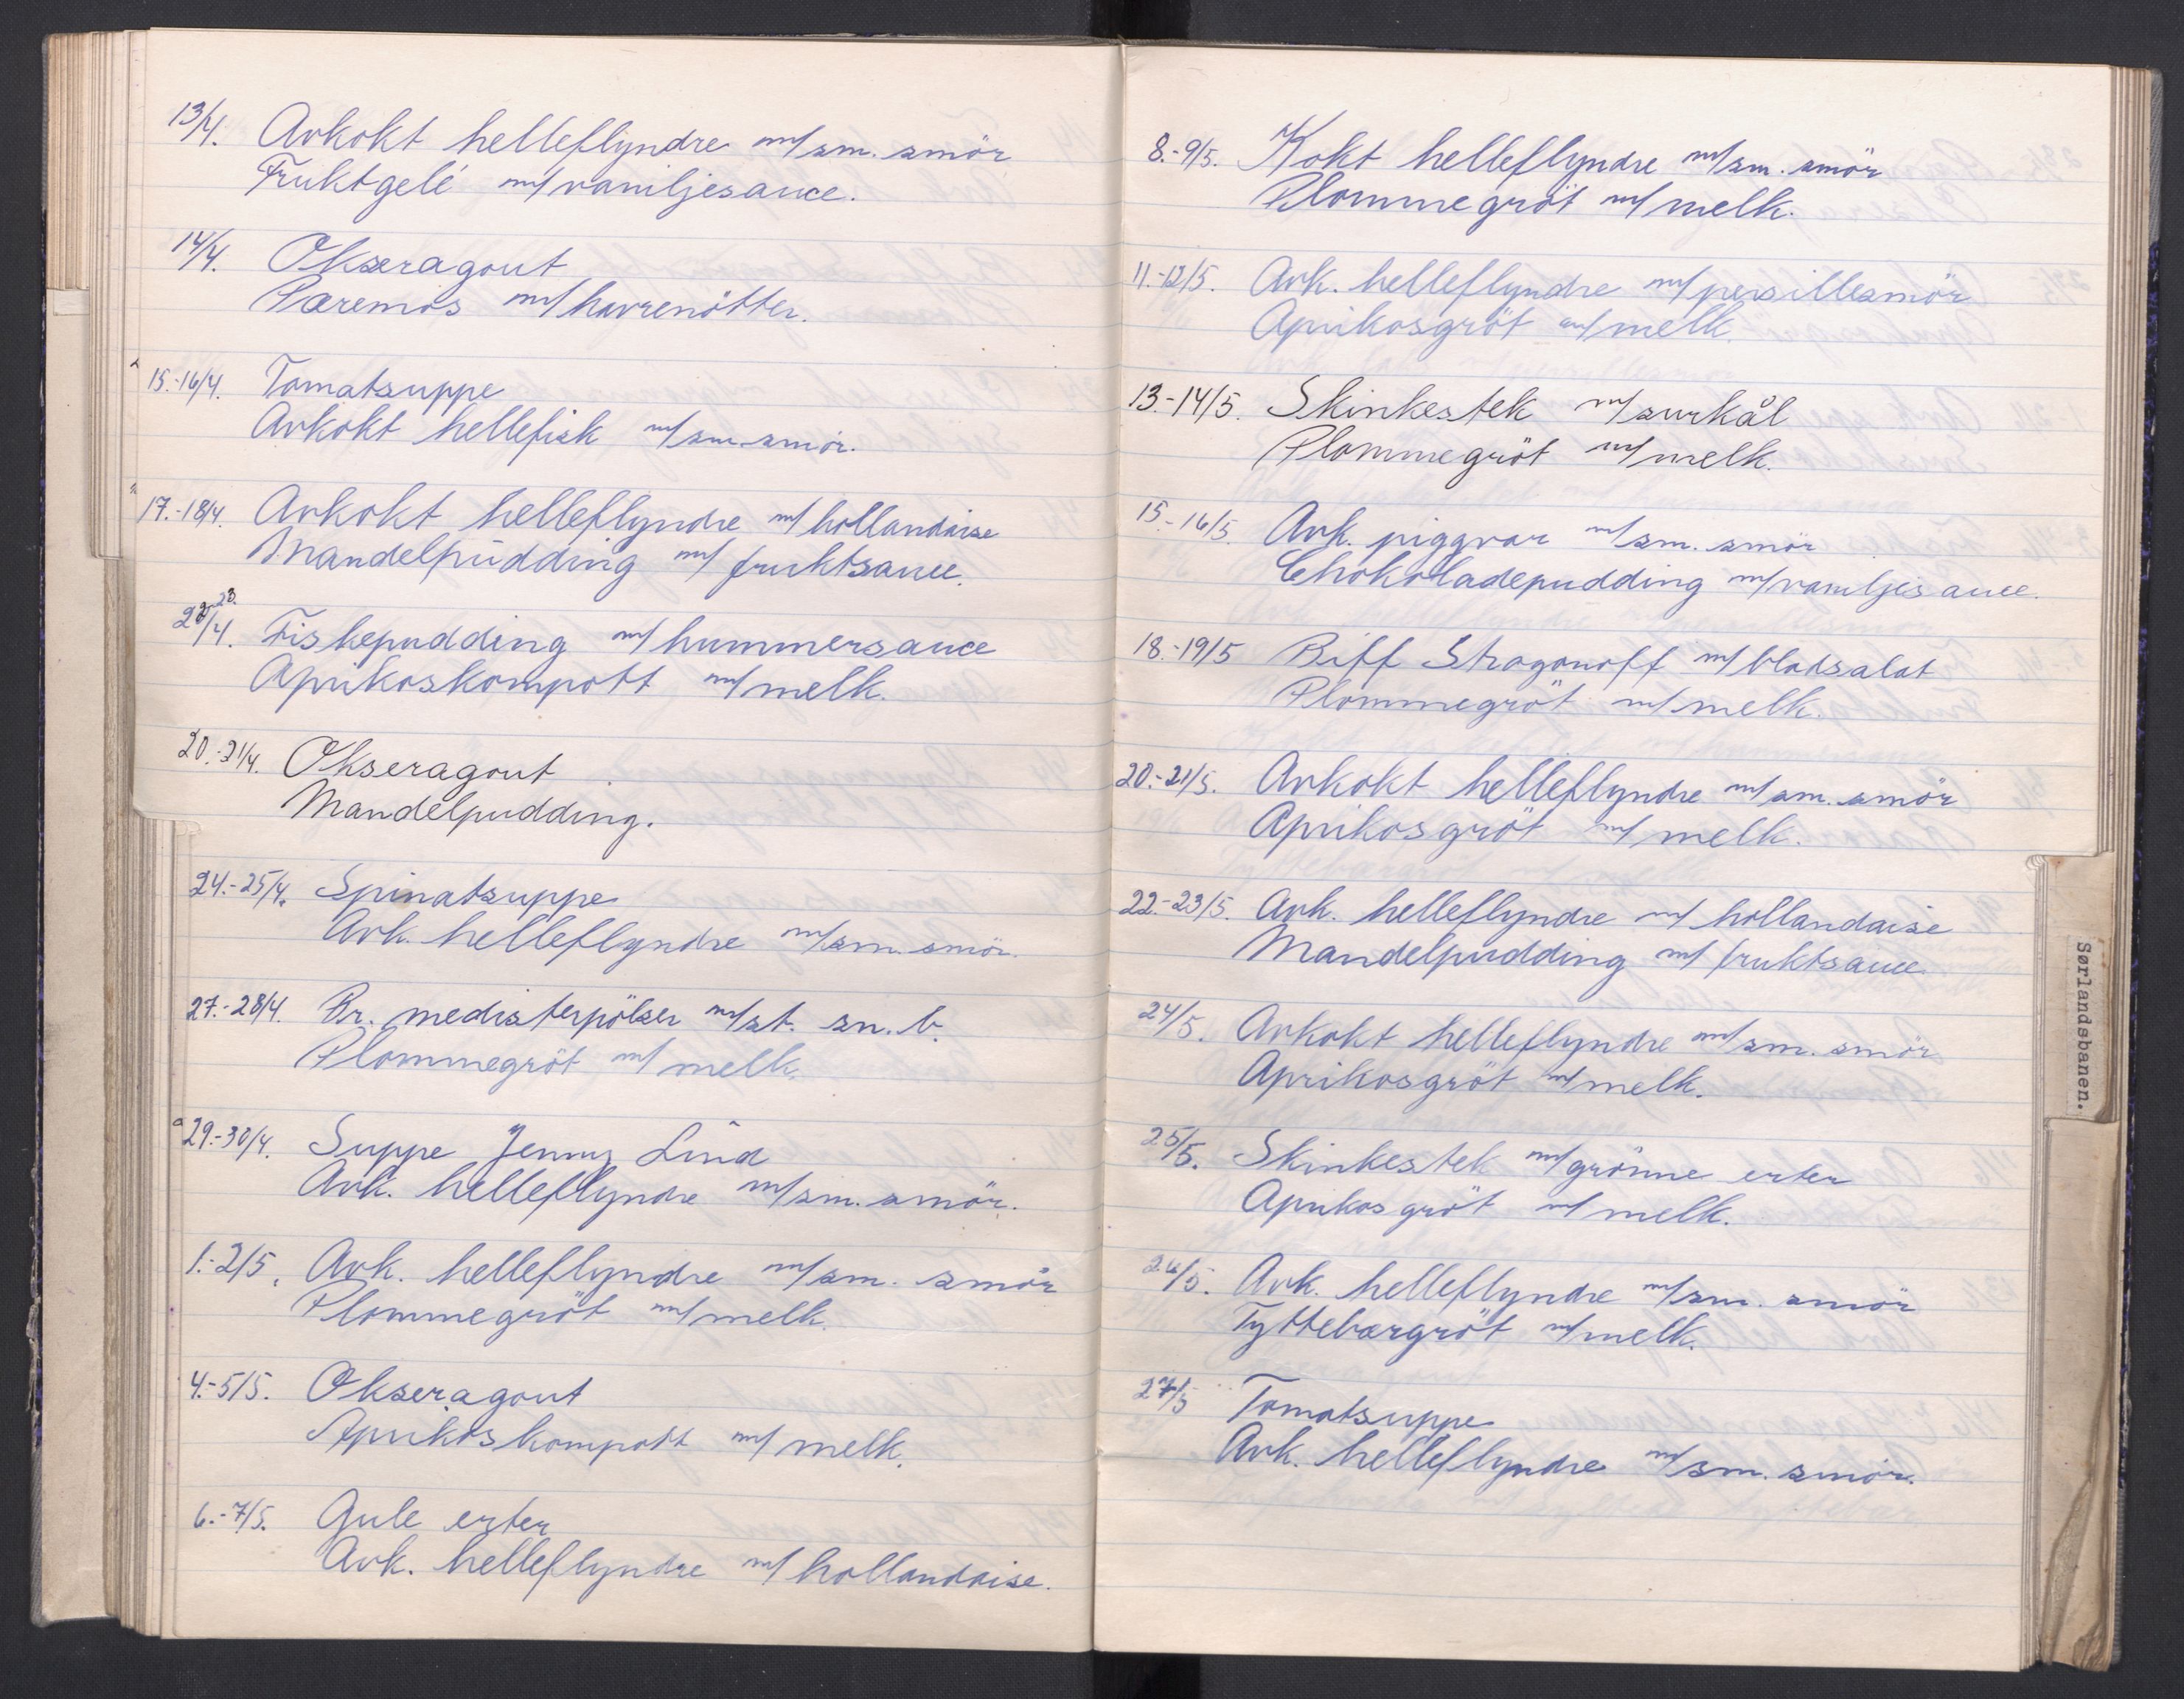 13/4. Avkokt helleflyndre m/sm. smör
Fruktgelé m/vaniljesauce.
14/4. Okseragout
Pæremos m/havrenötter.
15.-16/4. Tomatsuppe
Avkokt hellefisk m/sm. smör.
17.-18/4. Avkokt helleflyndre m/hollandaise
Mandelpudding m/fruktsauce.
22.-23./4. Fiskepudding m/hummersauce
Aprikoskompott m/melk.
20.-21/4. Okseragout
Mandelpudding.
24.-25/4. Spinatsuppe
Avk. helleflyndre m/sm. smör.
27.-28/4. Br. medisterpölser m/st. sn. b.
Plommegröt m/melk.
29.-30/4. Suppe Jenny Lind
Avk. helleflyndre m/sm. smör.
1.-2/5. Avk. helleflyndre m/sm. smör
Plommegröt m/melk.
4.-5/5. Okseragout
Aprikoskompott m/melk.
6.-7/5. Gule erter
Avk. helleflyndre m/hollandaise.
8.-9/5. Kokt helleflyndre m/sm. smör
Plommegröt m/melk.
11.-12/5. Avk. helleflyndre m/persillesmör
Aprikosgröt m/melk.
13.-14/5. Skinkestek m/surkål
Plommegröt m/melk.
15.-16/5. Avk. piggvar m/sm. smör
Chokoladepudding m/vaniljesauce.
18.-19/5 Biff Stroganoff m/bladsalat
Plommegröt m/melk.
20.-21/5. Avkokt helleflyndre m/sm. smör
Aprikosgröt m/melk.
22.-23/5. Avk. helleflyndre m/hollandaise
Mandelpudding m/fruktsauce.
24/5. Avkokt helleflyndre m/sm. smör
Aprikosgröt m/melk.
25/5. Skinkestek m/grönne erter
Aprikosgröt m/melk.
26/5. Avk. helleflyndre m/sm. smör
Tyttebærgröt m/melk.
27/5 Tomatsuppe
Avk. helleflyndre m/sm. smör.
Sørlandsbanen.